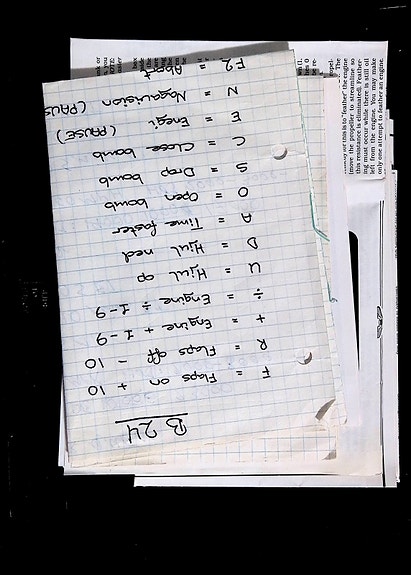 B 24
F = Flaps on + 10
R = Flaps off - 10
+ = Engine + 1-9
÷ = Engine ÷ 1-9
U = Hjul op
D = Hjul ned
A = Time faster
O = Open bomb
S = Drop bomb
C = Close bomb
E = Enegi (PAUSE)
N = Nagavision (PAUS
F2 = About
this is to "feather" the engine
(move the propeller to streamline so
this resistance is eliminated). Feather-
ing must occur while there is still oil
left from the engine. You may make
only one attempt to feather an engine.